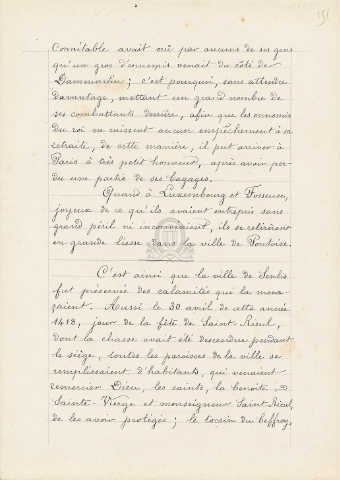 151
Connétable, avait ouï par aucuns de ses gens
qu'un gros d'ennemis venait du côté de
Dammartin ; c'est pourquoi, sans attendre
davantage, mettant un grand nombre de
ses combattants derrière, afin que les ennemis
du roi ne missent aucun empêchement à sa
retraite, de cette manière, il put arriver à
Paris à très petit honneur, après avoir per-
du une partie de ses bagages.
Quand à Luxembourg et Fosseux,
joyeux de ce qu'ils avaient entrepris sans
grand péril ni inconvénient, ils se retirèrent
en grande liesse dans la ville de Pontoise.
C'est ainsi que la ville de Senlis
fut préservée des calamités que la mena-
çaient. Aussi le 30 avril de cette année
1418, jour de la fête de Saint-Rieul,
dont la chasse avait été descendue pendant
le siège, toutes les paroisses de la ville se
remplissaient d'habitants, qui venaient
remercier Dieu, les saints, la benoîte
Sainte-Vierge et monseigneur Saint-Rieul,
de les avoir protégés ; le tocsin du beffroy,